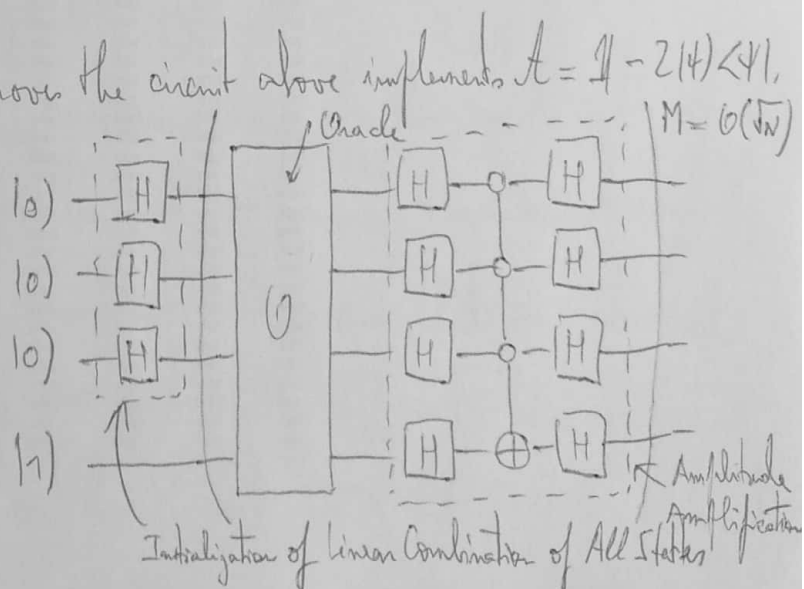 the circuit above implements A = 1 - 2|ψ><ψ|,
Oracle
M = O(√N)
|0) H H H
|0) H H H
|0) H O H H
|1) H H
Amplitude
Amplification
Initialization of Linear Combination of All States